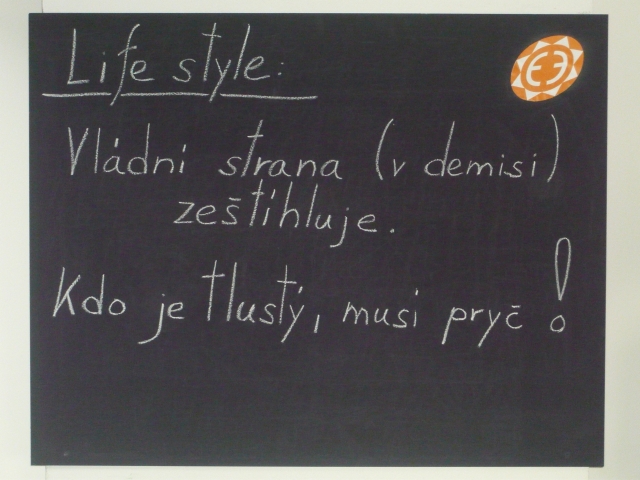 Life style:
Vládní strana (v demisi)
zeštíhluje.
Kdo je tlustý, musí pryč!